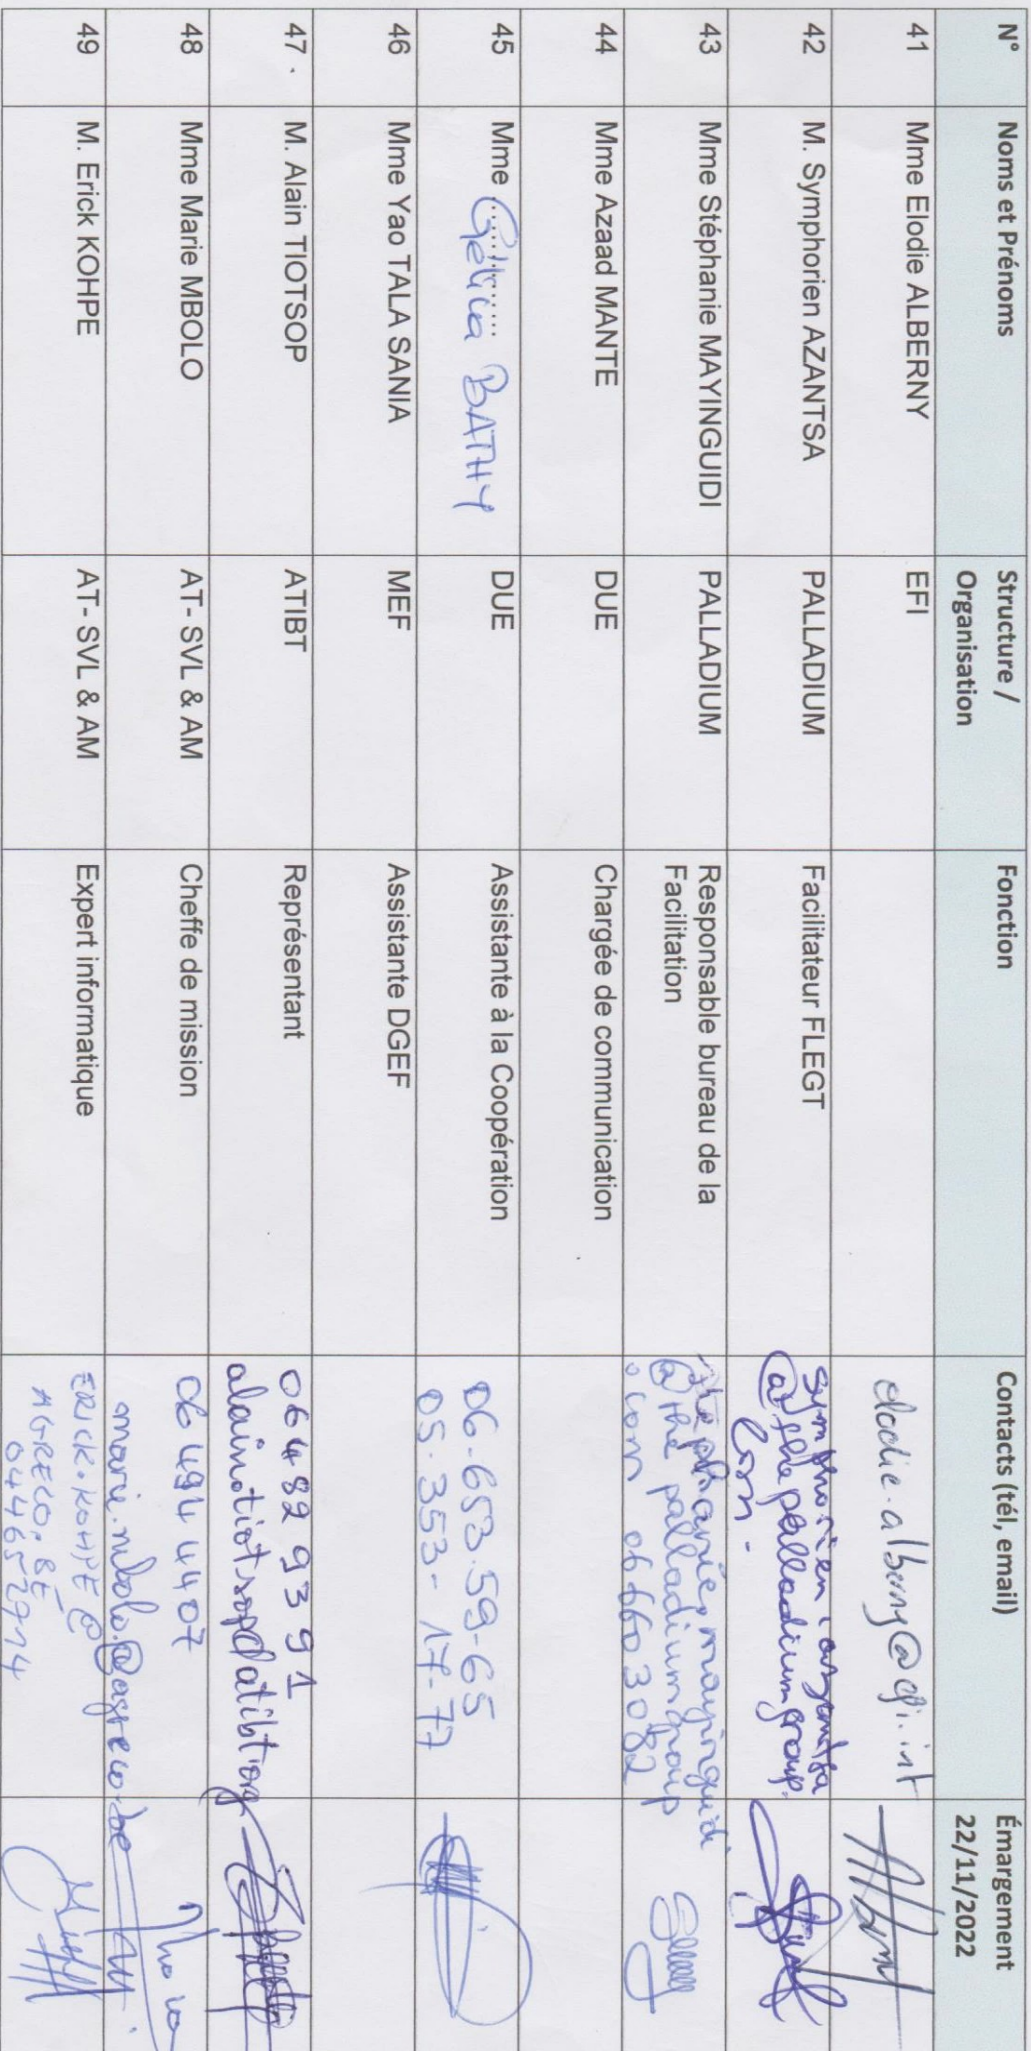 N° Noms et Prénoms Structure / Organisation Fonction Contacts (tél, email) Émargement 22/11/2022
41 Mme Elodie ALBERNY EFI elodie.alberny@efi.int
42 M. Symphorien AZANTSA PALLADIUM Facilitateur FLEGT symphorien.azantsa
@thepalladiumgroup.
com.
43 Mme Stéphanie MAYINGUIDI PALLADIUM Responsable bureau de la Facilitation stephanie.mayinguidi
@thepalladiumgroup
.com 06 660 3082
44 Mme Azaad MANTE DUE Chargée de communication
45 Mme ............ BATHY DUE Assistante à la Coopération 06-653.59-65
05.353-17-77
46 Mme Yao TALA SANIA MEF Assistante DGEF
47. M. Alain TIOTSOP ATIBT Représentant 06 482 93 91
alain.tiotsop@atibt.org
48 Mme Marie MBOLO AT- SVL & AM Cheffe de mission 06 494 44 07
marie.mbolo.@agreco.be
49 M. Erick KOHPE AT- SVL & AM Expert informatique ERICK.KOHPE@
AGRECO.BE